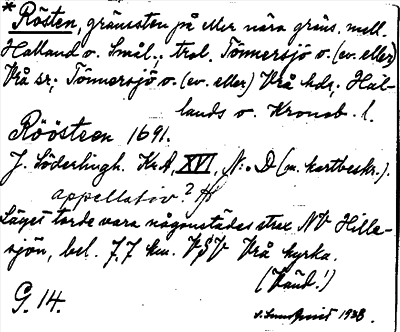 * Rösten, gränssten på eller nära gräns. mell.
Halland o. Smål., trol. Tönnersjö o. (ev. eller)
Vrå sr, Tönnersjö o. (ev. eller) Vrå hdr, Hal-
lands o. Kronob. l.
Röösteen 1691.
J. Söderlingh. KrA, XVI, N:o D (m. kartbeskr.).
appellativ?
Läget torde vara någonstädes strax NV Hilla-
sjön, bel. 7,7 km. V Vrå kyrka.
(Känd!)
G. 14.
1928.